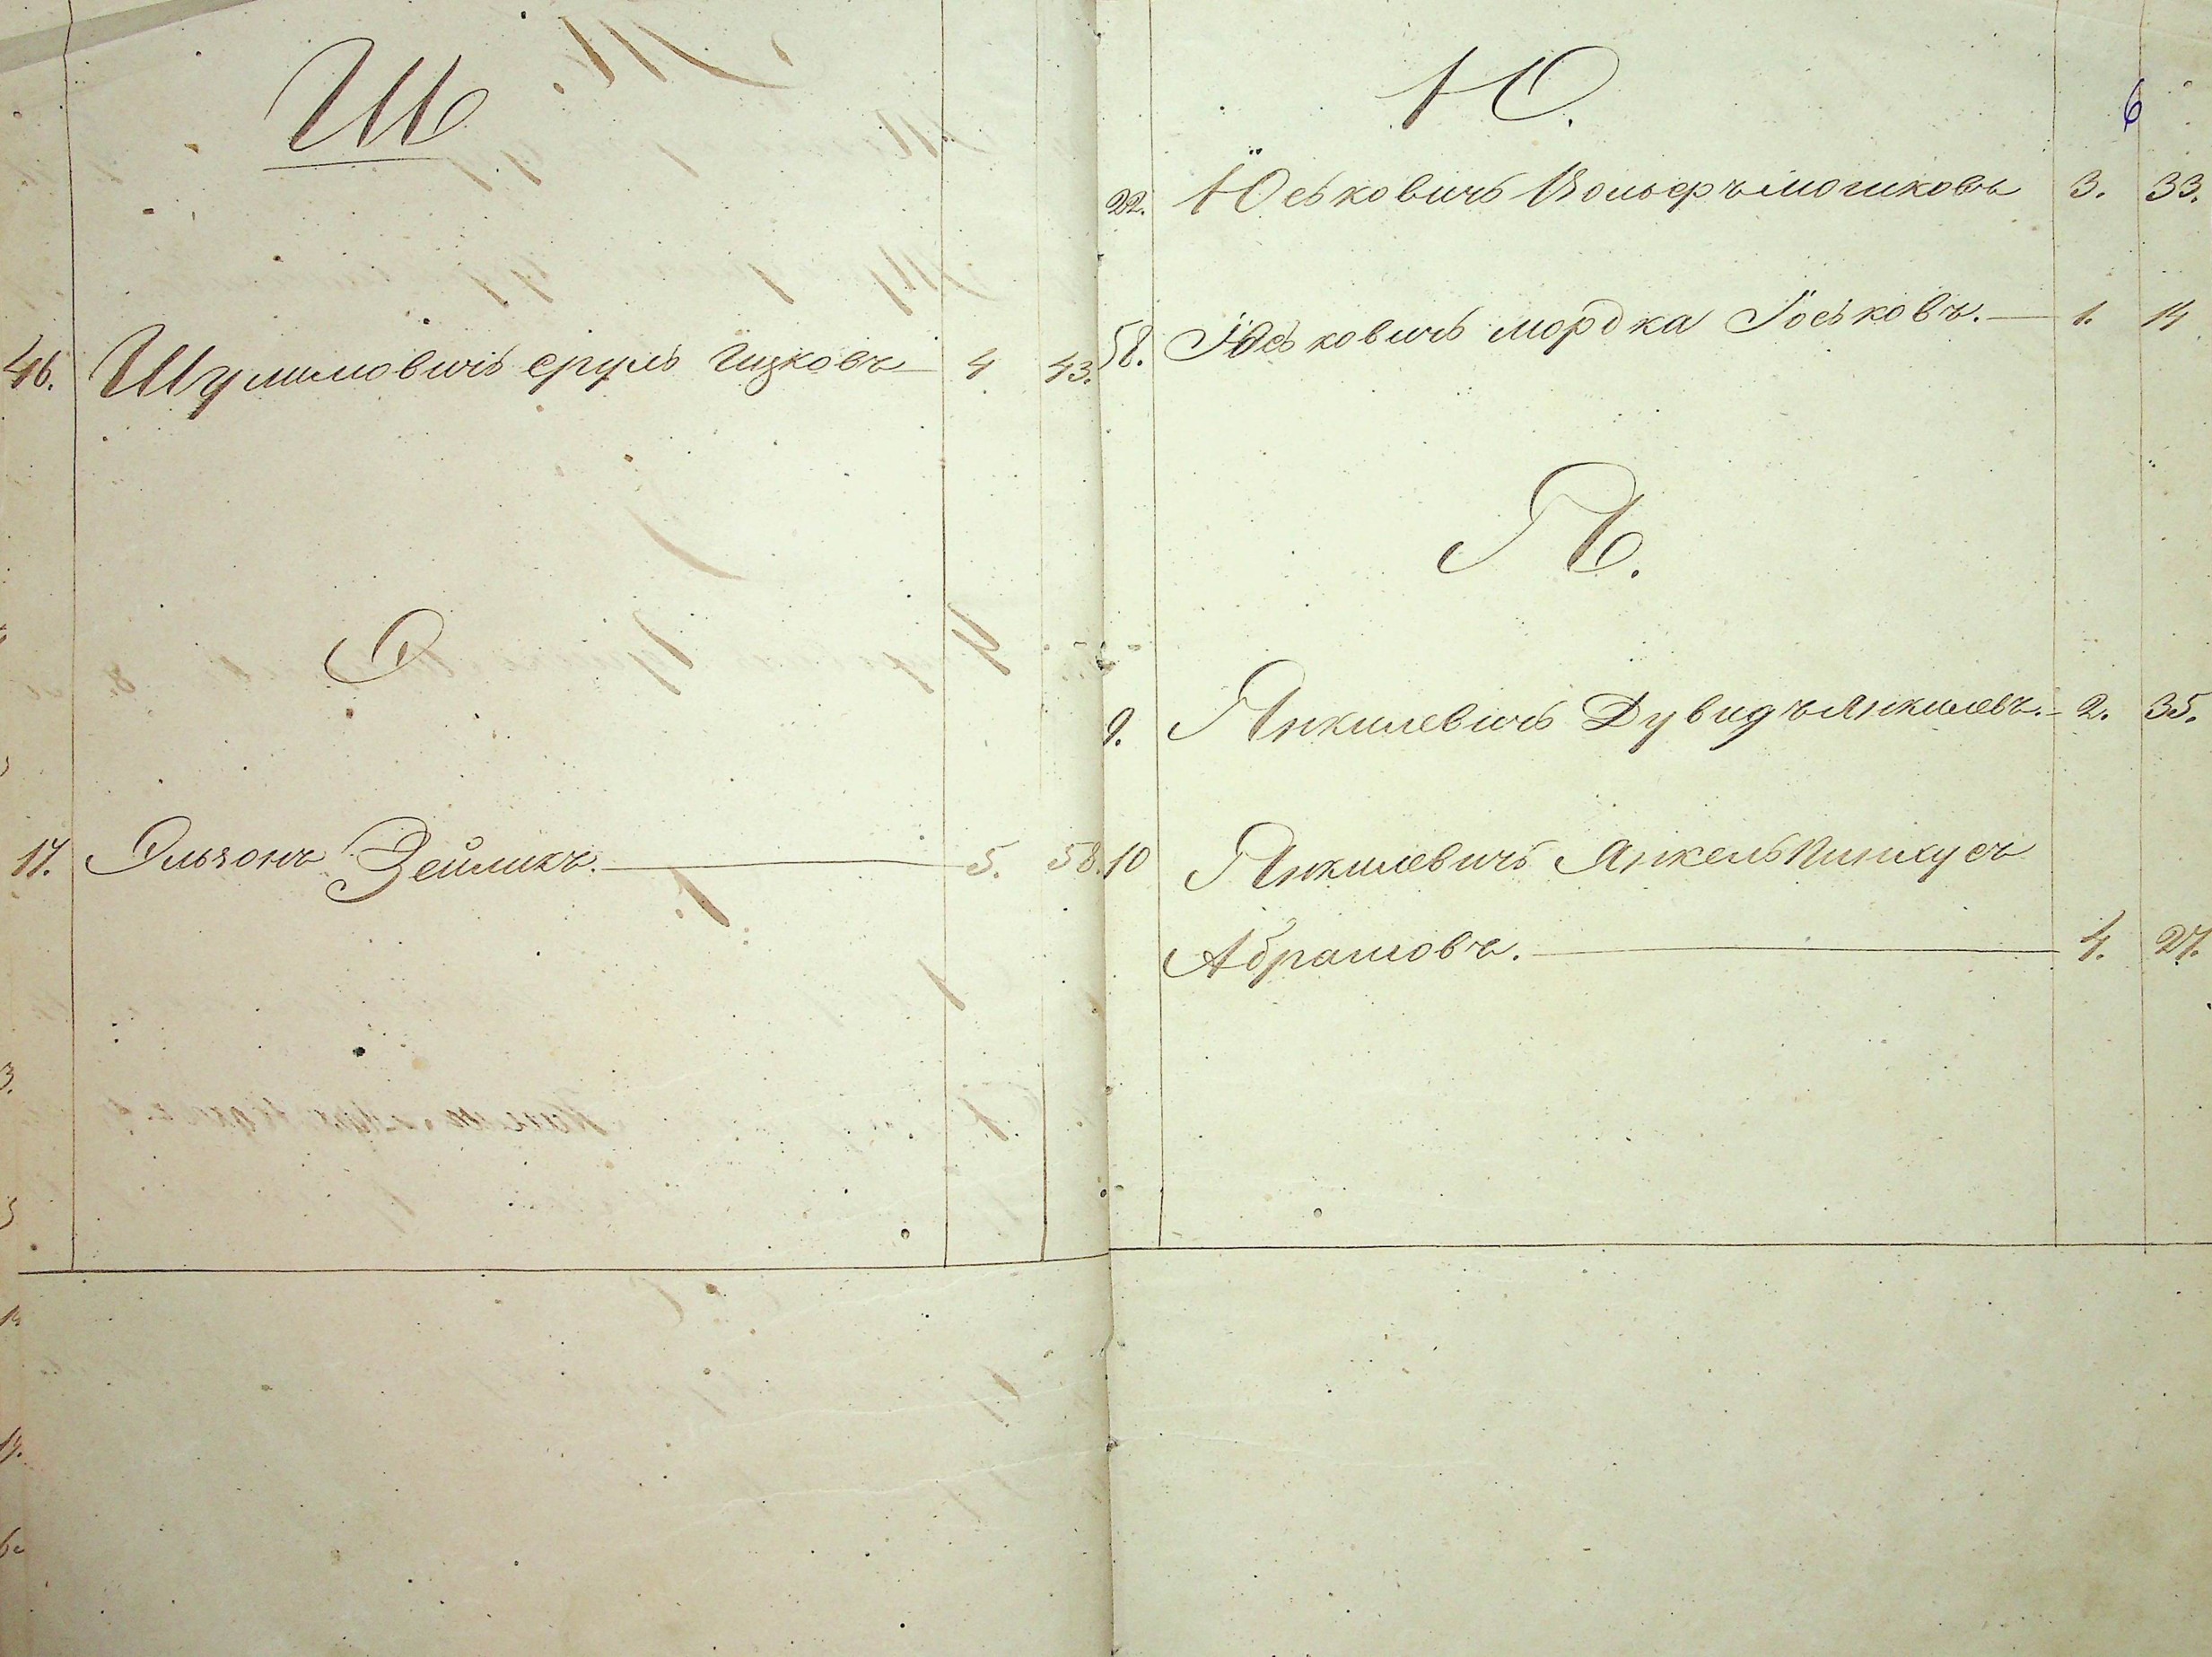 Ш
46. Шулимовичъ сруль Ицковъ 4 43.
Э
17. Эльзонъ Зейликъ. 5. 58.
6
Ю.
22. Юськовичъ Вольфъ мошковъ 3. 33.
58. Юськовичъ мордка Іоськовъ. 1. 14
Я.
9. Янкилевичъ Дувидъ Янкилевъ. 2. 35.
10 Янкилевичъ Янкель Пинхусъ
Абрамовъ. 4. 27.